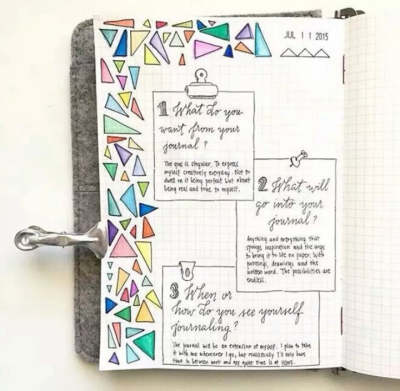 JUL 11 2015
1 What do you
want from your
journal?
The goal is singular. To express
myself creatively everyday. Not to
dwell on it being perfect but about
being real and true to myself.
2 What will
go into your
journal?
Anything and everything that
springs inspiration and the urge
to bring it to life on paper. With
paintings, drawings and the
written word. The possibilities are
endless.
3 When or
how do you see yourself
journaling?
The journal will be an extension of myself. I plan to take
it with me wherever I go, but realistically I'll only have
time in between work and my quiet time is at home.